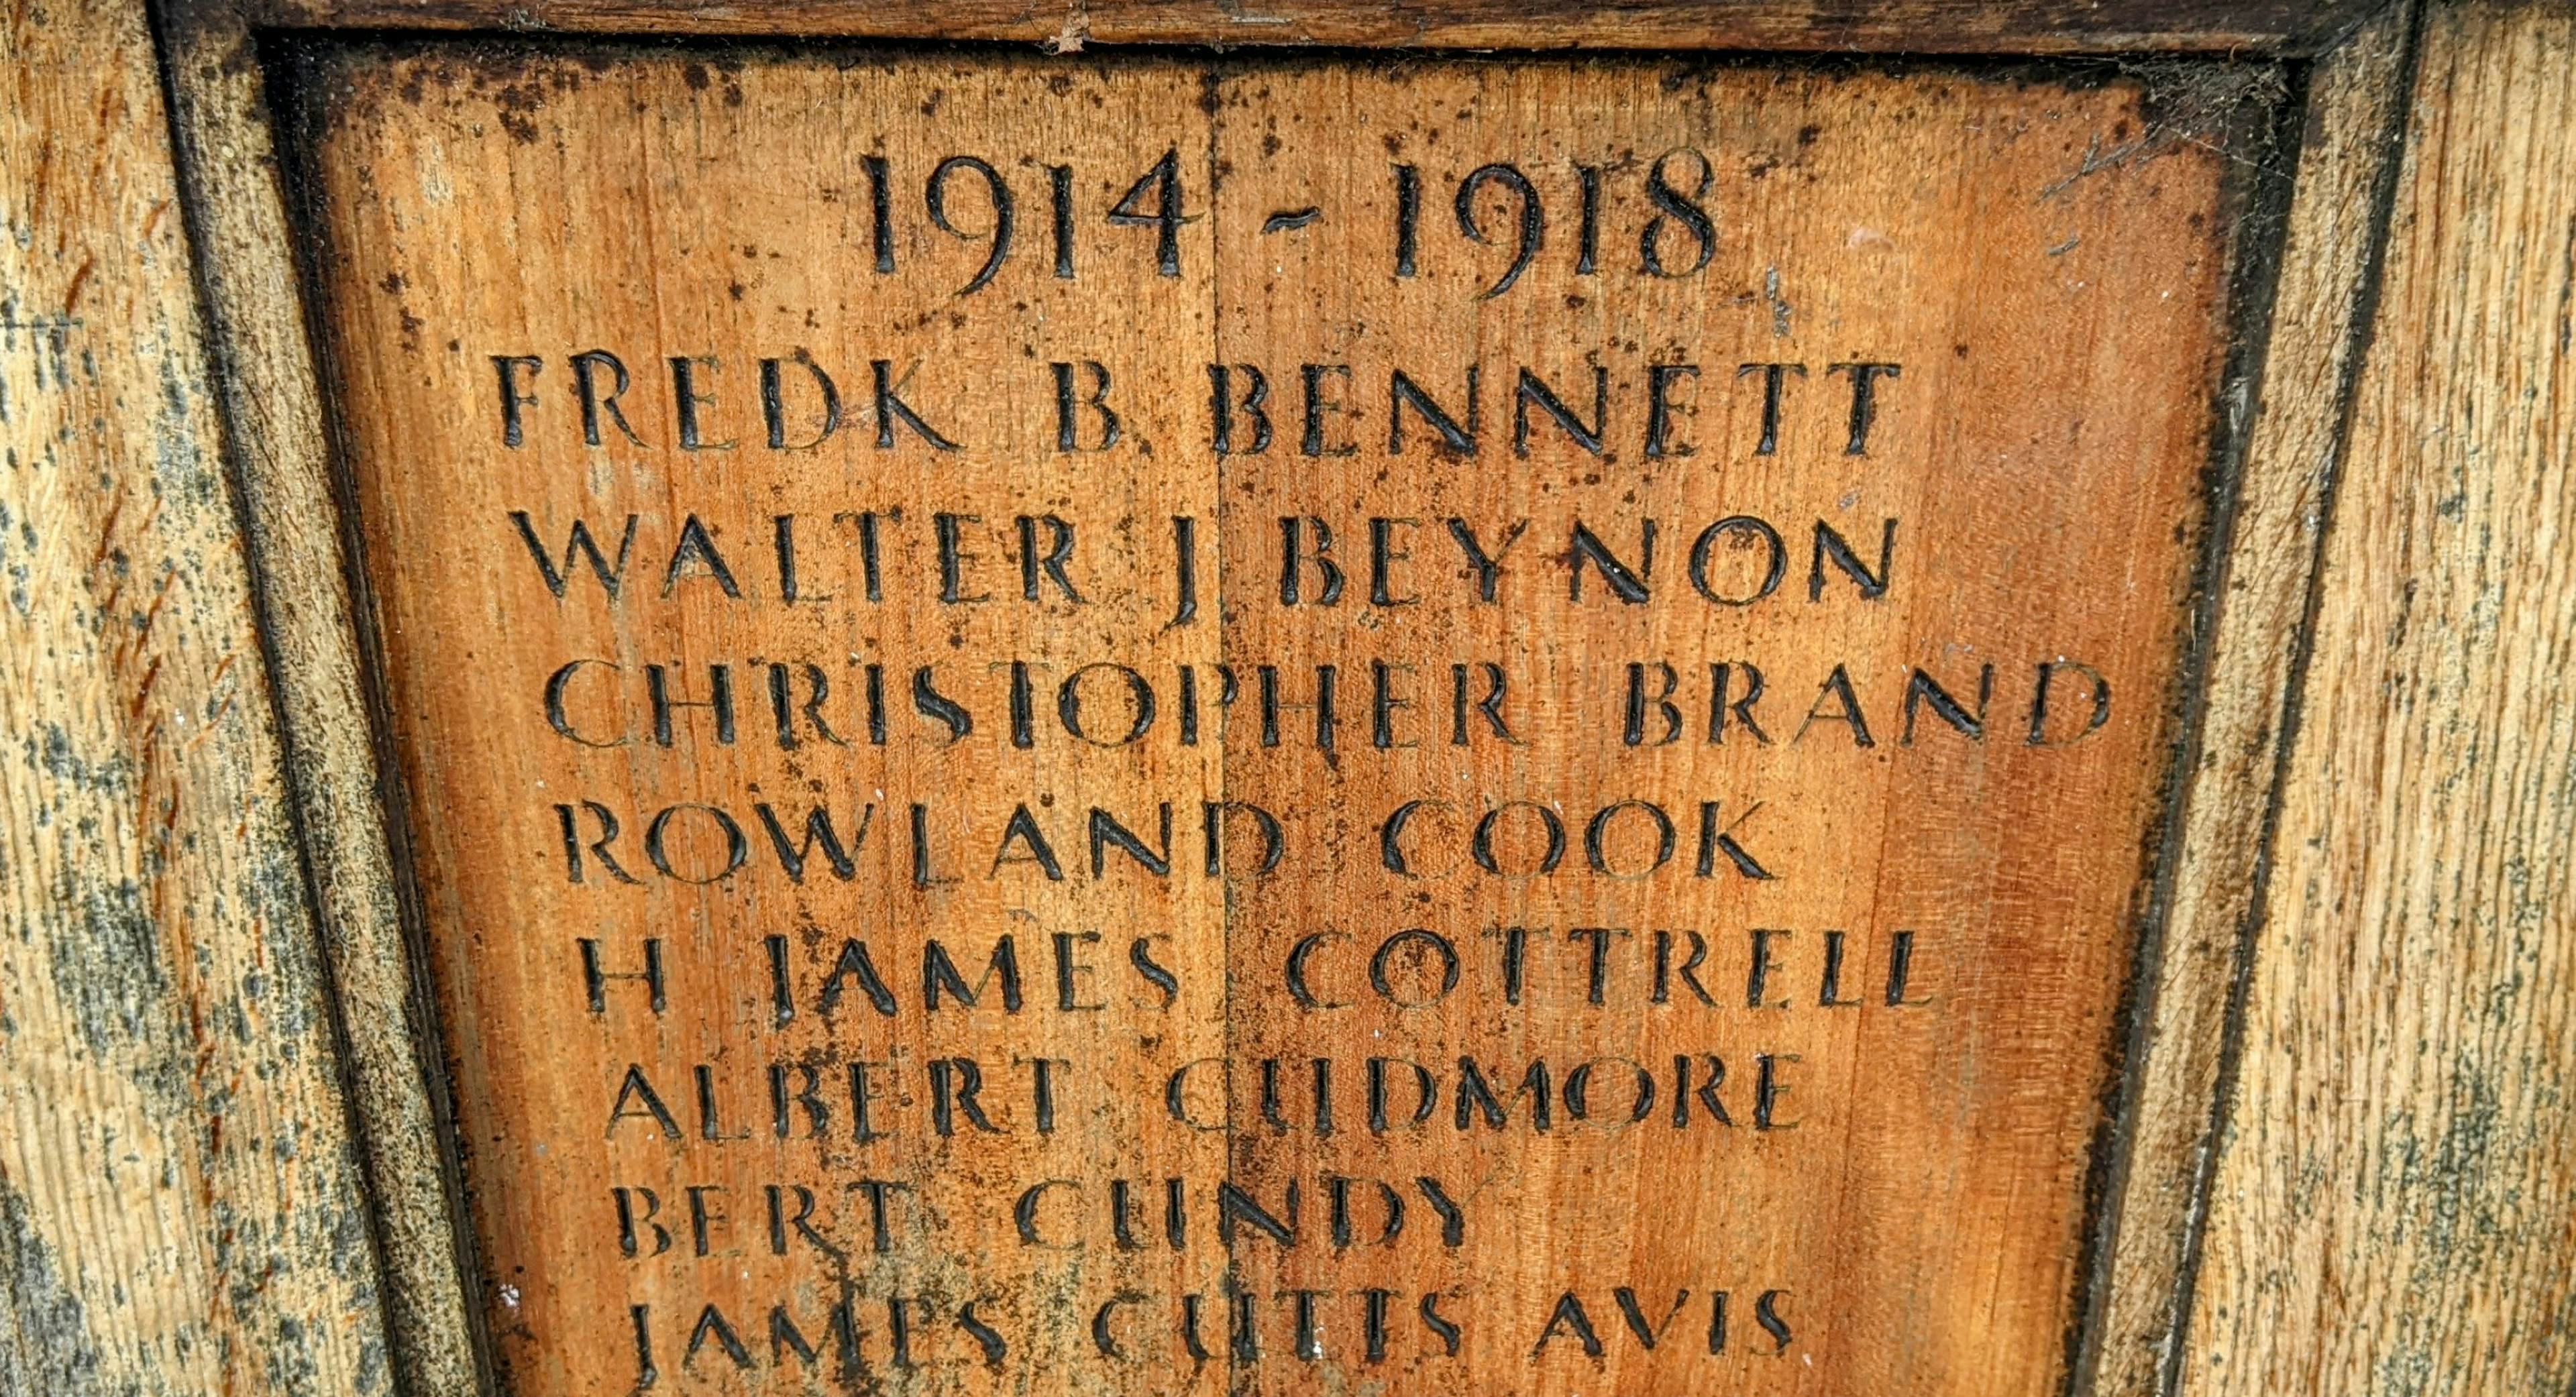 1914 - 1918
FREDK B. BENNETT
WALTER J. BEYNON
CHRISTOPHER BRAND
ROWLAND COOK
H JAMES COTTRELL
ALBERT CUDMORE
BERT CUNDY
JAMES CUTTS AVIS